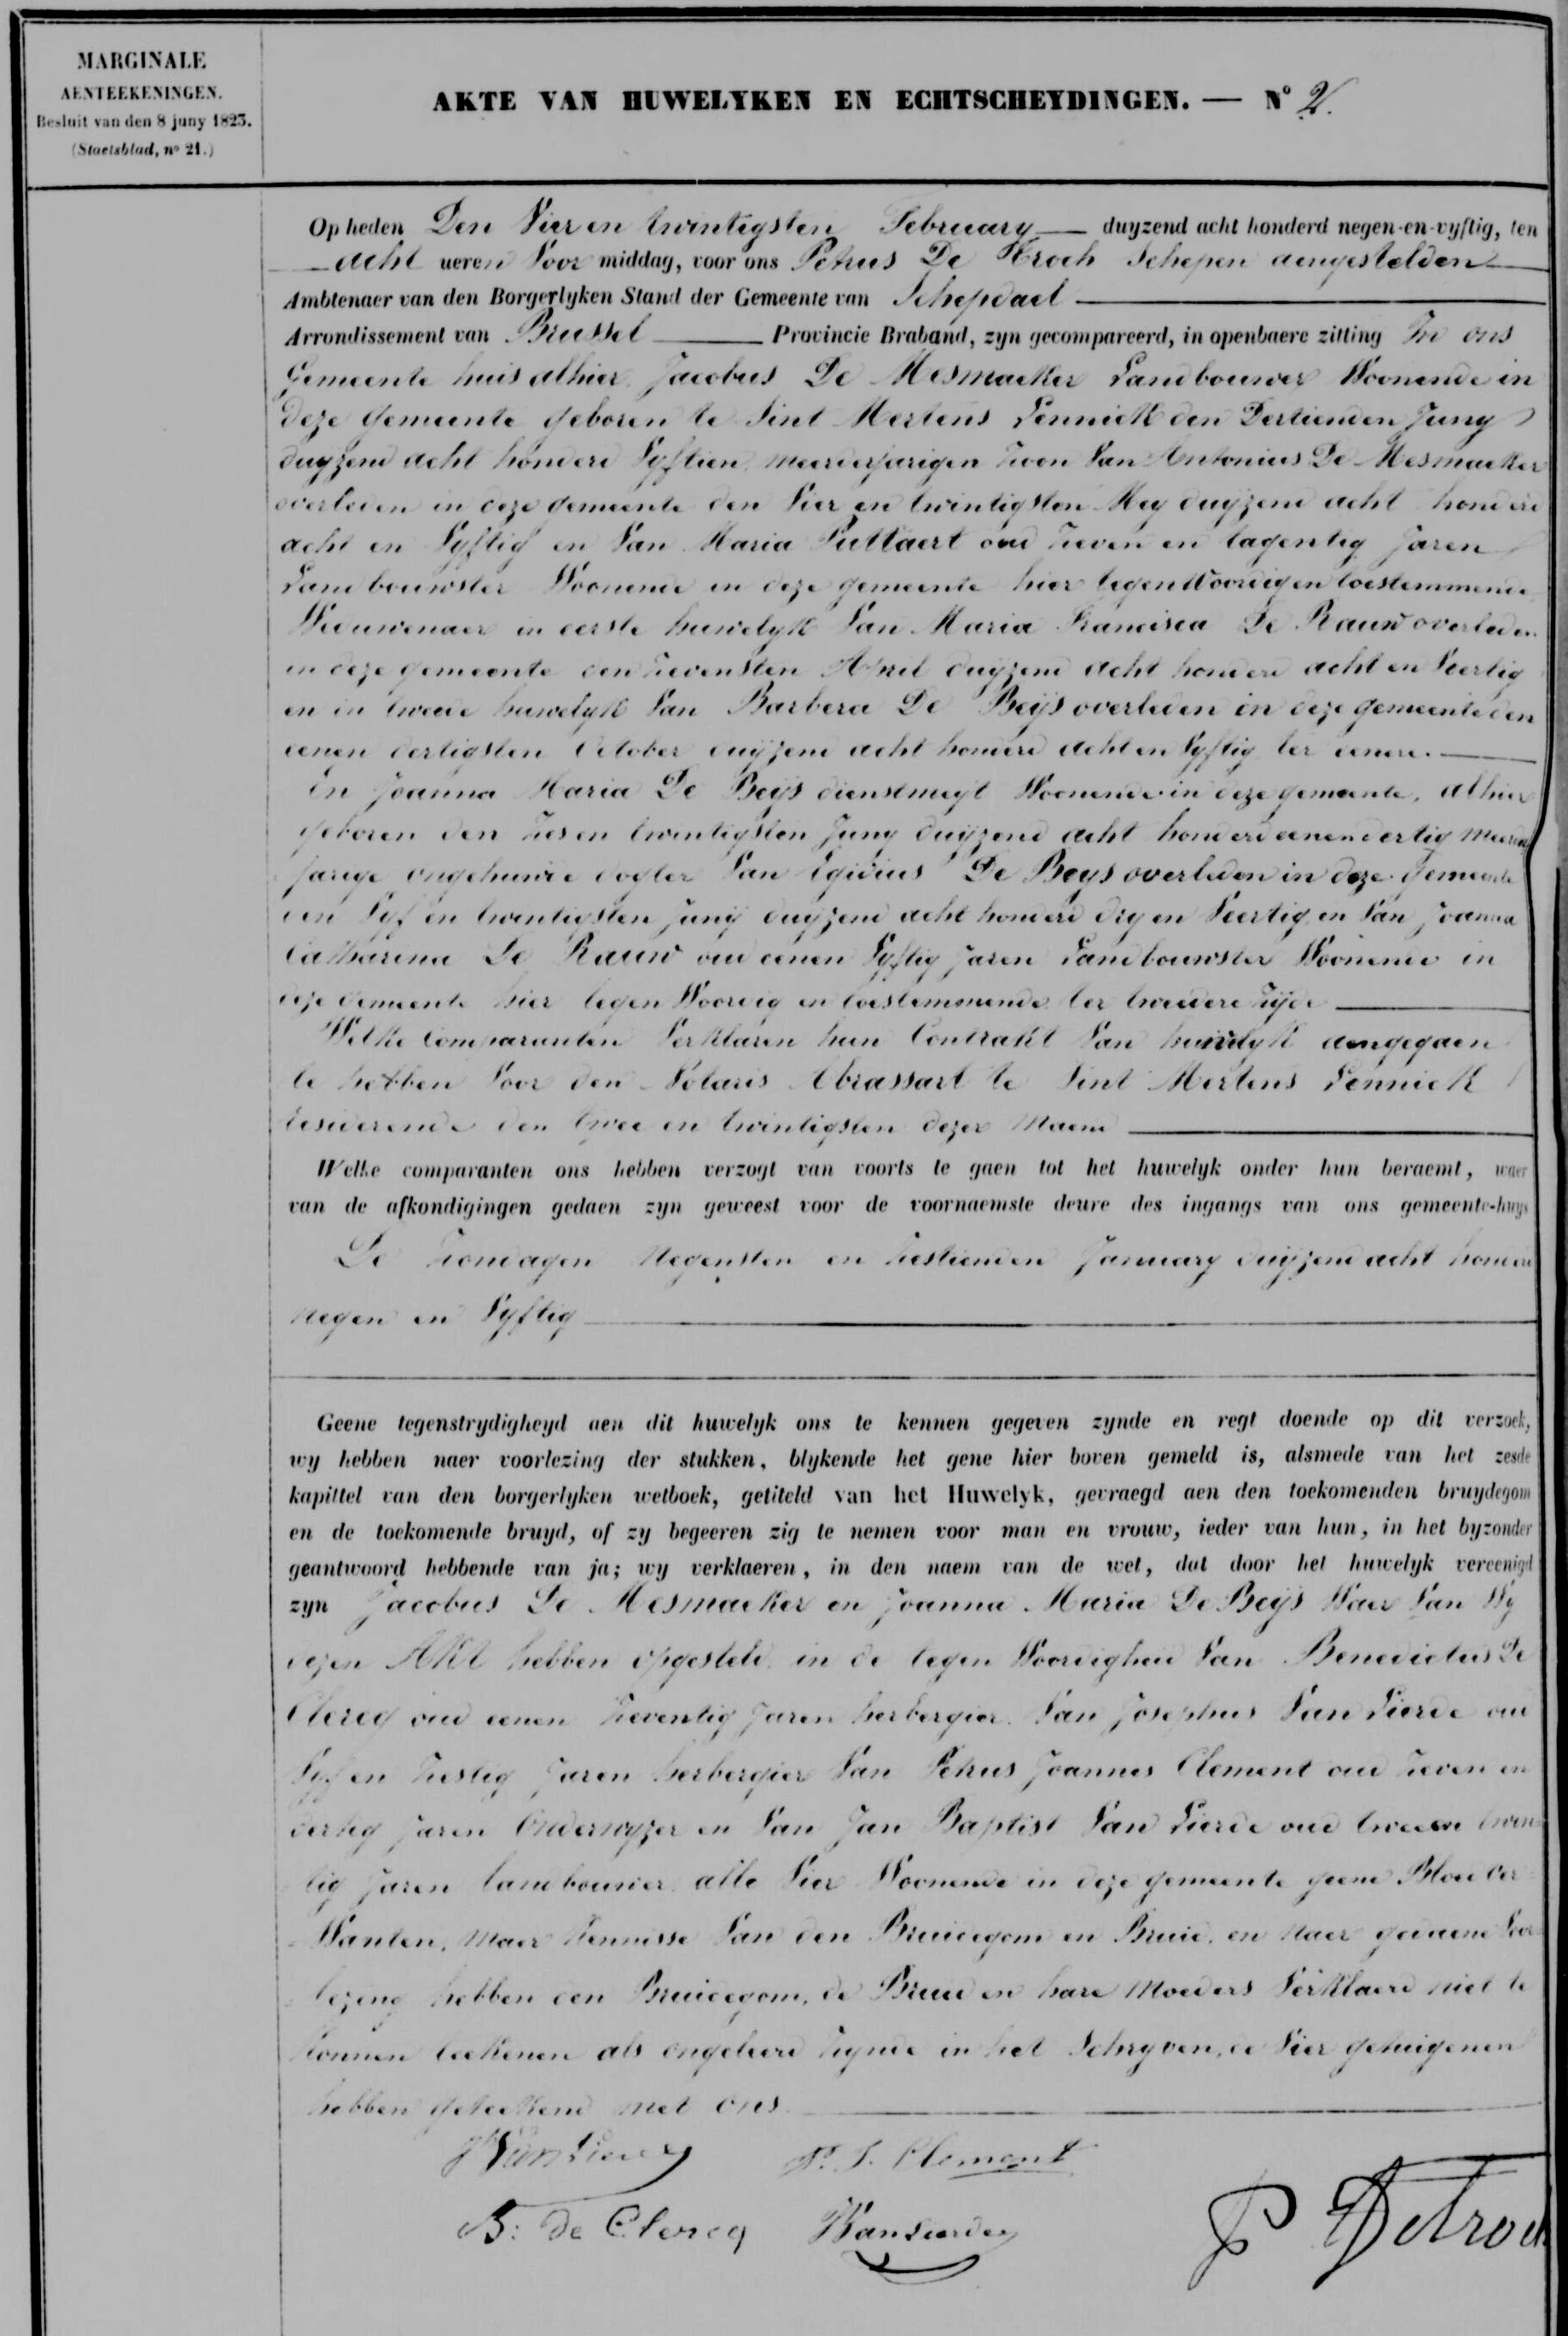 MARGINALE
AENTEEKENINGEN.
Besluit van den 8 juny 1823.
(Staetsblad, nº 21.)
AKTE VAN HUWELYKEN EN ECHTSCHEYDINGEN. — Nº 2.
Op heden Den Vier en twintigsten February duyzend acht honderd negen-en-vyftig, ten
acht ueren Voor middag, voor ons Petrus De Troch Schepen aengestelden
Ambtenaer van den Borgerlyken Stand der Gemeente van Schepdael
Arrondissement van Brussel Provincie Braband, zyn gecompareerd, in openbaere zitting In ons
Gemeente huis alhier Jacobus De Mesmaeker Landbouwer Woonende in
deze gemeente geboren te Sint Mertens Lennick den Dertienden Juny
duyzend acht honderd Vyftien, meerderjarigen zoon Van Antonius De Mesmaeker
overleden in deze gemeente den Vier en twintigsten Mey duyzend acht honderd
acht en Vyftig en Van Maria Puttaert oud zeven en tagentig Jaren
Landbouwster Woonende in deze gemeente hier tegenwoordig en toestemmende
Weeuwenaer in eerste huwelyk Van Maria Francisca De Rauw overleden
in deze gemeente den zevensten April duyzend acht honderd acht en Veertig
en in tweede huwelyk Van Barbera De Beys overleden in deze gemeente den
eenen dertigsten October duyzend acht honderd acht en Vyftig ter eenere.
En Joanna Maria De Beys dienstmeyt Woonende in deze gemeente, alhier
geboren den zes en twintigsten Juny duyzend acht honderd eenendertig meerder
jarige ongehuwde dogter Van Egidius De Beys overleden in deze gemeente
den Vyf en twintigsten Juny duyzend acht honderd dry en Veertig en Van Joanna
Catharina De Rauw oud eenen Vyftig Jaren Landbouwster Woonende in
deze gemeente hier tegen Woordig en toestemmende ter tweedere zyde
Welke Comparanten Verklaren hun Contrakt Van huwelyk aengegaen
te hebben Voor den Notaris Abrassart te Sint Mertens Lennick
residerende den twee en twintigsten dezer maend
Welke comparanten ons hebben verzogt van voorts te gaen tot het huwelyk onder hun beraemt, waer
van de afkondigingen gedaen zyn geweest voor de voornaemste deure des ingangs van ons gemeente-huys
De zondagen Negensten en zestienden January duyzend acht honderd
negen en Vyftig
Geene tegenstrydigheyd aen dit huwelyk ons te kennen gegeven zynde en regt doende op dit verzoek,
wy hebben naer voorlezing der stukken, blykende het gene hier boven gemeld is, alsmede van het zesde
kapittel van den borgerlyken wetboek, getiteld van het Huwelyk, gevraegd aen den toekomenden bruydegom
en de toekomende bruyd, of zy begeeren zig te nemen voor man en vrouw, ieder van hun, in het byzonder
geantwoord hebbende van ja; wy verklaeren, in den naem van de wet, dat door het huwelyk vereenigd
zyn Jacobus De Mesmaeker en Joanna Maria De Beys Waer Van Wy
dezen Akt hebben opgesteld in de tegen Woordigheid Van Benedictus De
Clercq oud eenen zeventig Jaren herbergier. Van Josephus Van Lierde oud
Vyf en zestig Jaren herbergier Van Petrus Joannes Clement oud zeven en
dertig Jaren Onderwyzer en Van Jan Baptist Van Lierde oud tweeen twin
tig Jaren landbouwer alle Vier Woonende in deze gemeente geene Bloedver
Wanten, maer kennisse Van den Bruidegom en Bruid, en naer gedaene Voor
lezing hebben den Bruidegom, de Bruid en hare moeders Verklaerd niet te
konnen teekenen als ongeleerd zynde in het Schryven, de Vier getuigenen
hebben geteekend met ons
J Van Lierde
P. J. Clement
B: De Clercq
JB Van Lierde
P Detroch